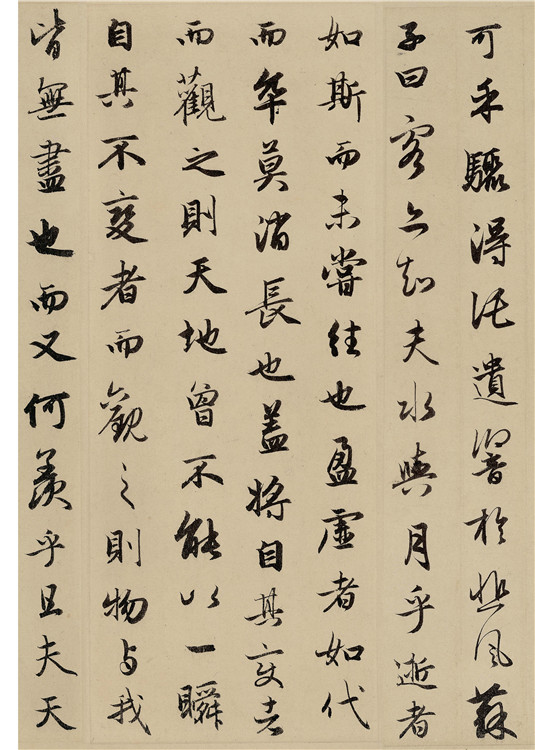 可乎驟得託遺響於悲風蘇
子曰客亦知夫水與月乎逝者
如斯而未嘗往也盈虛者如代
而卒莫消長也蓋將自其變者
而觀之則天地曾不能以一瞬
自其不變者而觀之則物与我
皆無盡也而又何羨乎且夫天